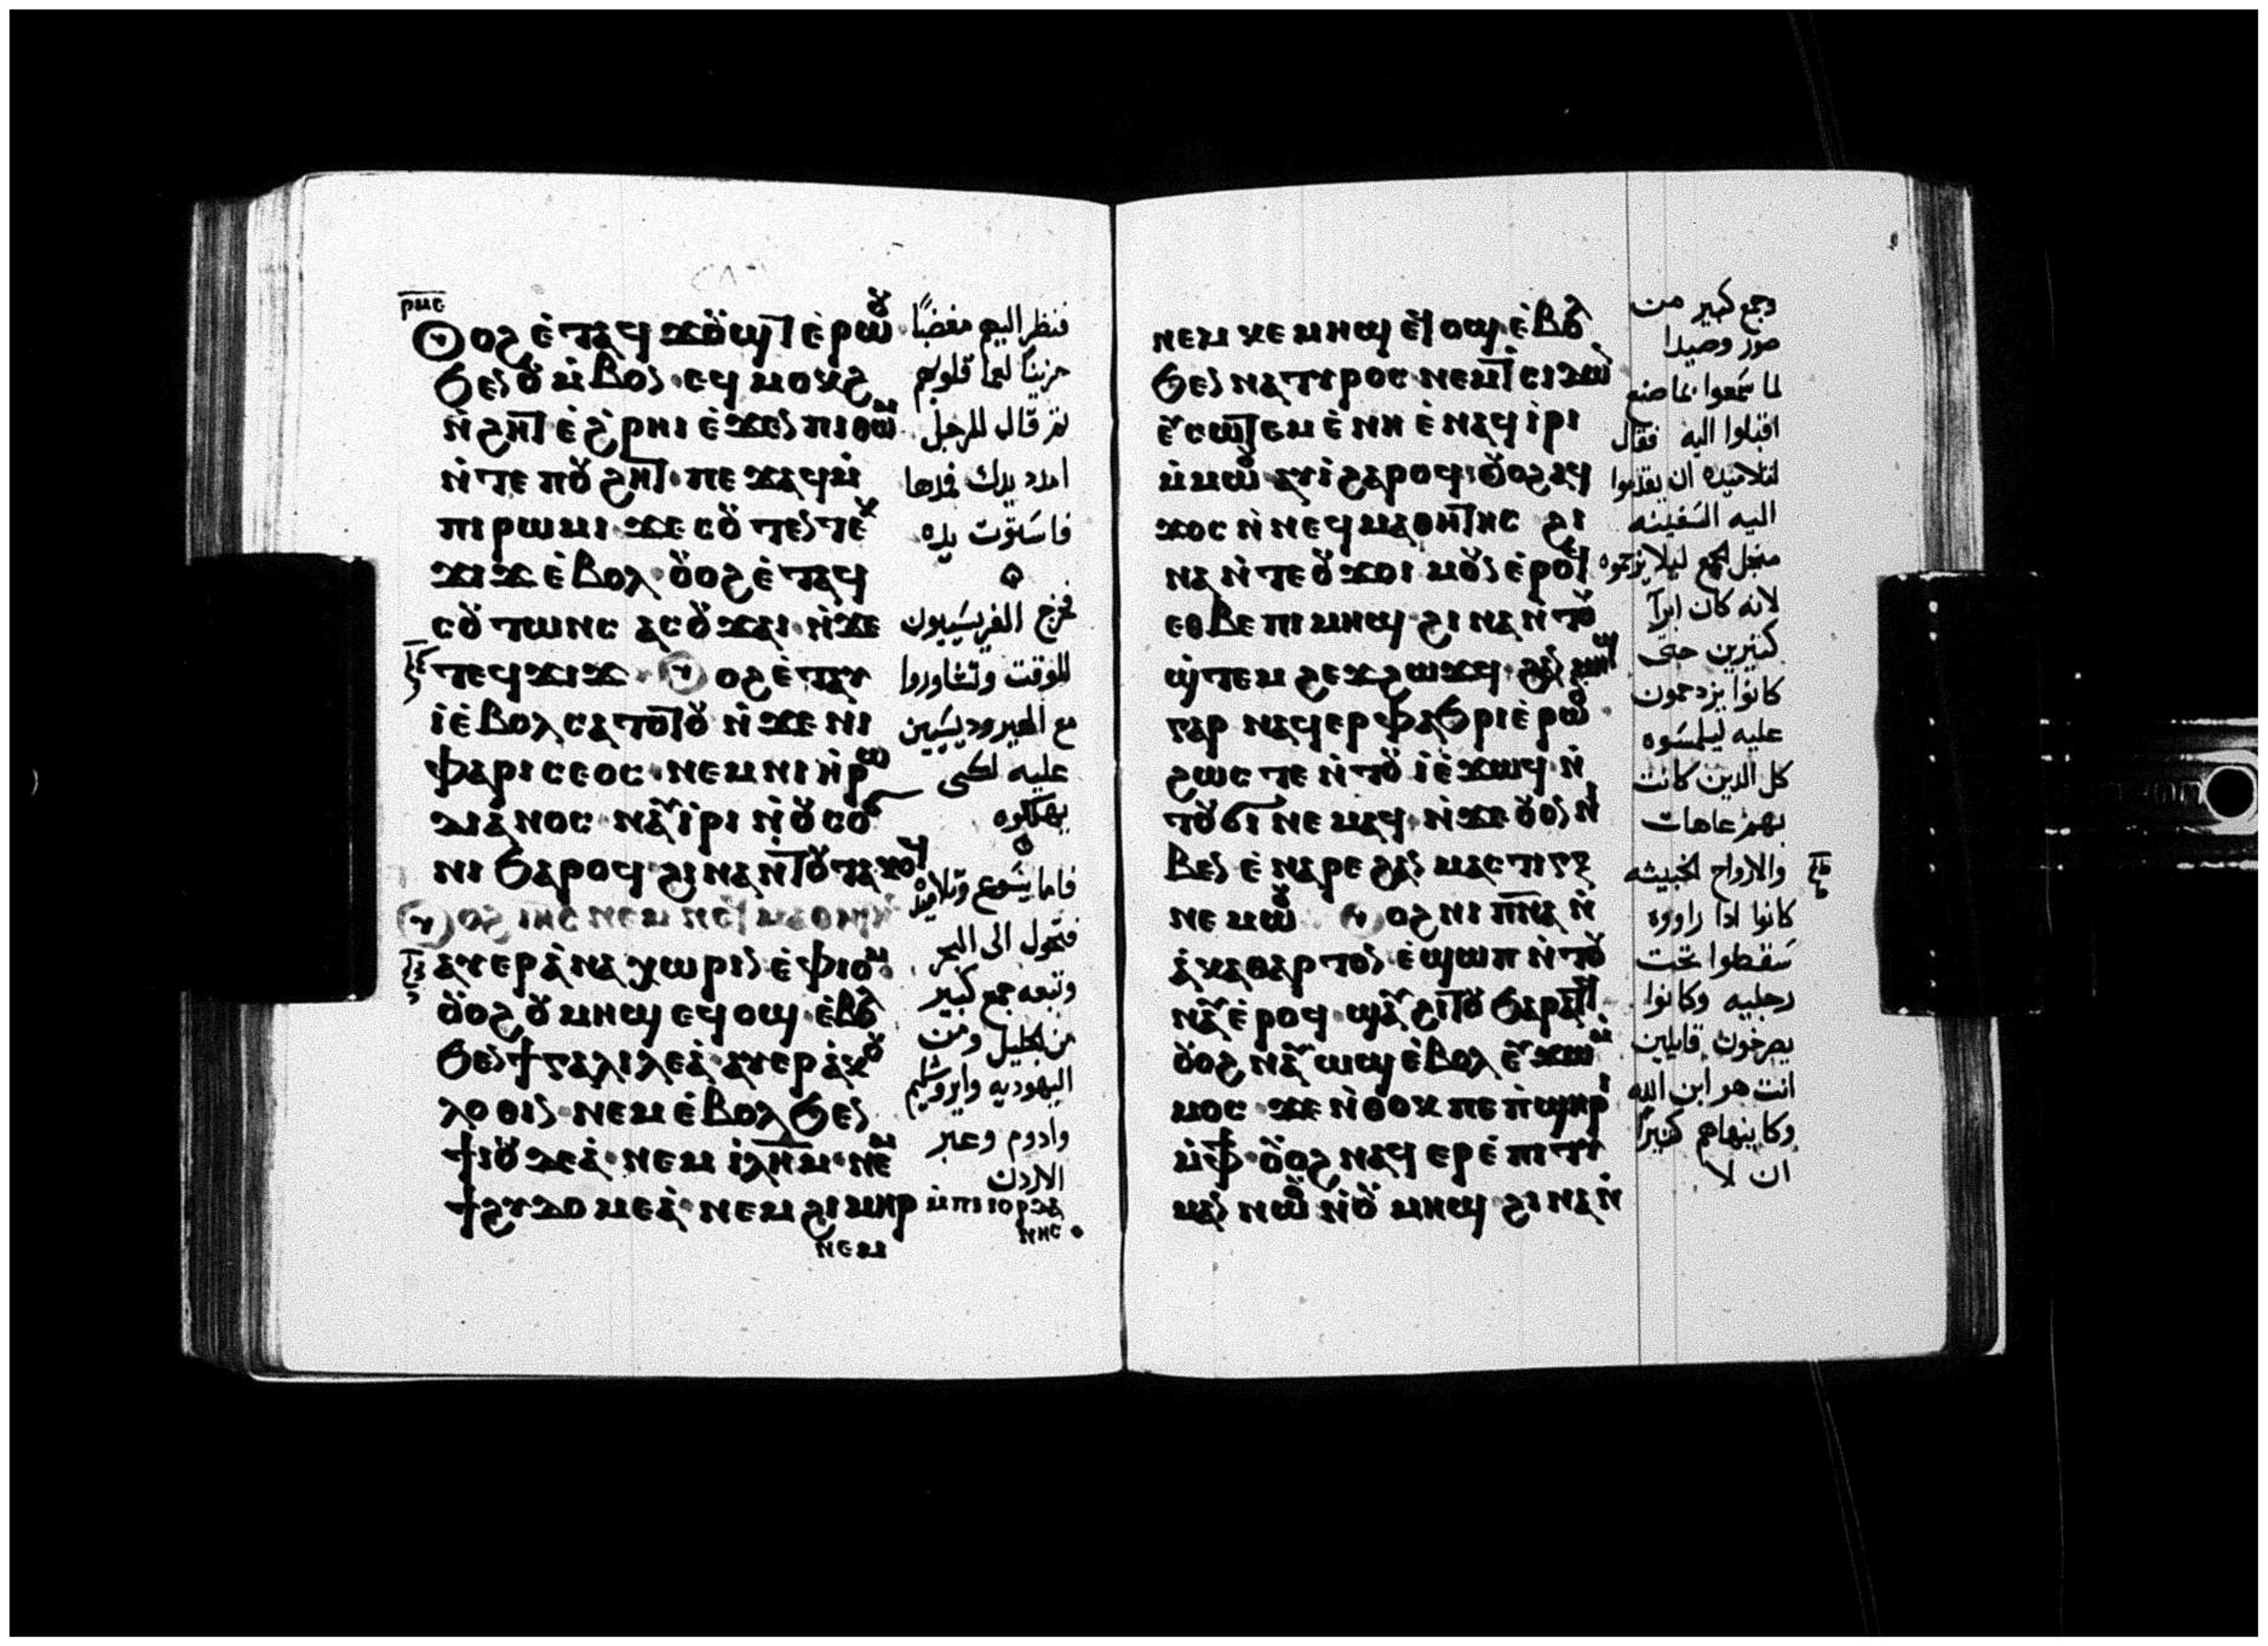 ⲣⲙⲉ
ⲟⲩⲟϩ ⲉ̀ⲧⲁϥϫⲟⲩϣⲧ ⲉ̀ⲣⲱⲟⲩ
ϧⲉⲛ ⲟⲩⲙ̀ⲃⲟⲛ · ⲉϥⲙⲟⲕϩ
ⲛ̀ϩⲏⲧ ⲉ̀ϩ̀ⲣⲏⲓ ⲉ̀ϫⲉⲛ ⲡⲓⲑⲱⲙ
ⲛ̀ⲧⲉ ⲡⲟⲩϩⲏⲧ · ⲡⲉϫⲁϥ ⲙ̀
ⲡⲓⲣⲱⲙⲓ · ϫⲉ ⲥⲟⲩⲧⲉⲛ ⲧⲉⲕ
ϫⲓϫ ⲉ̀ⲃⲟⲗ · ⲟⲩⲟϩ ⲉ̀ⲧⲁϥ
ⲥⲟⲩⲧⲱⲛⲥ ⲁⲥⲟⲩϫⲁⲓ · ⲛ̀ϫⲉ
ⲧⲉϥϫⲓϫ · ⲟⲩⲟϩ ⲉ̀ⲧⲁⲩ
ⲓ̀ ⲉ̀ⲃⲟⲗ ⲥⲁⲧⲟⲧⲟⲩ ⲛ̀ϫⲉ ⲛⲓ
ⲫⲁⲣⲓⲥⲉⲟⲥ · ⲛⲉⲙ ⲛⲓⲏ̀ⲣⲱ
ⲇⲓⲁ̀ⲛⲟⲥ · ⲛⲁⲩⲓ̀ⲣⲓ ⲛ̀ⲟⲩⲥⲟϭ
ⲛⲓ ϧⲁⲣⲟϥ · ϩⲓⲛⲁ ⲛ̀ⲧⲟⲩⲧⲁⲕⲟϥ
ⲟⲩⲟϩ ⲓⲏⲥ ⲛⲉⲙ ⲛⲉϥⲙⲁⲑⲏⲧⲏⲥ
ⲁⲩⲉⲣⲁ̀ⲛⲁⲭⲱⲣⲓⲛ ⲉ̀ⲫⲓⲟⲙ
ⲟⲩⲟϩ ⲟⲩⲙⲏϣ ⲉϥⲟϣ · ⲉ̀ⲃⲟⲗ
ϧⲉⲛ ϯⲅⲁⲗⲓⲗⲉⲁ̀ · ⲁⲩⲉⲣⲁ̀ⲕⲟⲩ
ⲗⲟⲑⲓⲛ · ⲛⲉⲙ ⲉ̀ⲃⲟⲗ ϧⲉⲛ
ϯⲓⲟⲩⲇⲉⲁ̀ · ⲛⲉⲙ ⲓ̀ⲗⲏⲙ · ⲛⲉⲙ
ϯϩⲩⲇⲟⲩⲙⲉⲁ̀ · ⲛⲉⲙ ϩⲓⲙⲏⲣ ⲙ̀ⲡⲓⲓⲟⲣⲇⲁ
ⲛⲏⲥ ·
ⲛⲉⲙ
فنظر اليهم مغضبًا
حزينًا لعما قلوبهم
ثم قال للرجل
امدد يدك فمدها
فاستوت يده
فخرج الفريسيون
للوقت وتشاوروا
مع الهيروديسيين
عليه لكى
يهلكوه
فاما يسوع وتلاميذه
فتحول الى البحر
وتبعه جمع كبير
من الجليل ومن
اليهوديه وايروشليم
وادوم وعبر
الاردن
ⲛⲉⲙ ⲕⲉⲙⲏϣ ⲉϥⲟϣ · ⲉ̀ⲃⲟⲗ
ϧⲉⲛ ⲛⲁⲧⲩⲣⲟⲥ · ⲛⲉⲙ ⲧⲥⲓⲇⲱⲛ
ⲉⲩⲥⲱⲧⲉⲙ ⲉ̀ⲛⲏ ⲉ̀ⲛⲁϥⲓ̀ⲣⲓ
ⲙ̀ⲙⲱⲟⲩ · ⲁⲩⲓ̀ ϩⲁⲣⲟϥ · ⲟⲩⲟϩ ⲁϥ
ϫⲟⲥ ⲛ̀ⲛⲉϥⲙⲁⲑⲏⲧⲏⲥ ϩⲓ
ⲛⲁ ⲛ̀ⲧⲉ ⲟⲩϫⲟⲓ ⲙⲟⲩⲛ ⲉ̀ⲣⲟϥ
ⲉⲑⲃⲉ ⲡⲓⲙⲏϣ · ϩⲓⲛⲁ ⲛ̀ⲧⲟⲩ
ϣ̀ⲧⲉⲙϩⲉϫϩⲱϫϥ · ϩⲁⲛⲙⲏϣ
ⲅⲁⲣ ⲛⲁϥⲉⲣⲫⲁϧⲣⲓ ⲉ̀ⲣⲱⲟⲩ ·
ϩⲱⲥⲧⲉ ⲛ̀ⲧⲟⲩⲓ̀ ⲉ̀ϫⲱϥ · ⲛ̀
ⲧⲟⲩϭⲓ ⲛⲉⲙⲁϥ · ⲛ̀ϫⲉ ⲟⲩⲟⲛ ⲛⲓ
ⲃⲉⲛ ⲉ̀ⲛⲁⲣⲉ ϩⲁⲛⲙⲁⲥⲧⲓⲅⲝ
ⲛⲉⲙⲱⲟⲩ ⲟⲩⲟϩ ⲛⲓⲡⲛⲁ ⲛ̀
ⲁ̀ⲕⲁⲑⲁⲣⲧⲟⲛ · ⲉ̀ϣⲱⲡ ⲛ̀ⲧⲟⲩ
ⲛⲁⲩ ⲉ̀ⲣⲟϥ · ϣⲁⲩϩⲓⲧⲟⲩ ϧⲁⲣⲁⲧϥ
ⲟⲩⲟϩ ⲛⲁⲩⲱϣ ⲉ̀ⲃⲟⲗ ⲉⲩϫⲱⲙ̀
ⲙⲟⲥ · ϫⲉ ⲛ̀ⲑⲟⲕ ⲡⲉ ⲡ̀ϣⲏⲣⲓ
ⲙ̀ⲫϯ · ⲟⲩⲟϩ ⲛⲁϥⲉⲣⲉ̀ⲡⲓⲧⲓ
ⲙⲁⲛ ⲛⲱⲟⲩ ⲛ̀ⲟⲩⲙⲏϣ · ϩⲓⲛⲁ ⲛ̀
وجمع كبير من
صور وصيدا
لما سمعوا بما صنع
اقبلوا اليه فقال
لتلاميذه ان يقدموا
اليه السفينه
منجل الجمع ليلا يزحموه
لانه كان ابرا
كثيرين حتى
كانوا يزدحمون
عليه ليلمسوه
كل الدين كانت
بهم عاهات
والارواح الخبيثه
كانوا ادا راووه
سقطوا تحت
رجليه وكانوا
يصرخون قايلين
انت هو ابن الله
وكا ينهاهم كثيرًا
ان لا